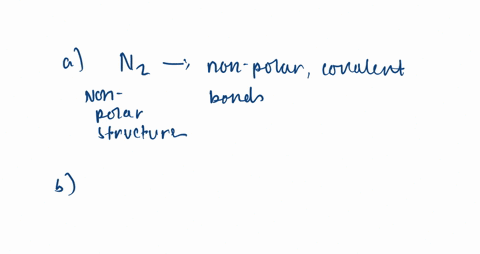 a) N2 → non-polar, covalent
Non- bonds
polar
structure
b)